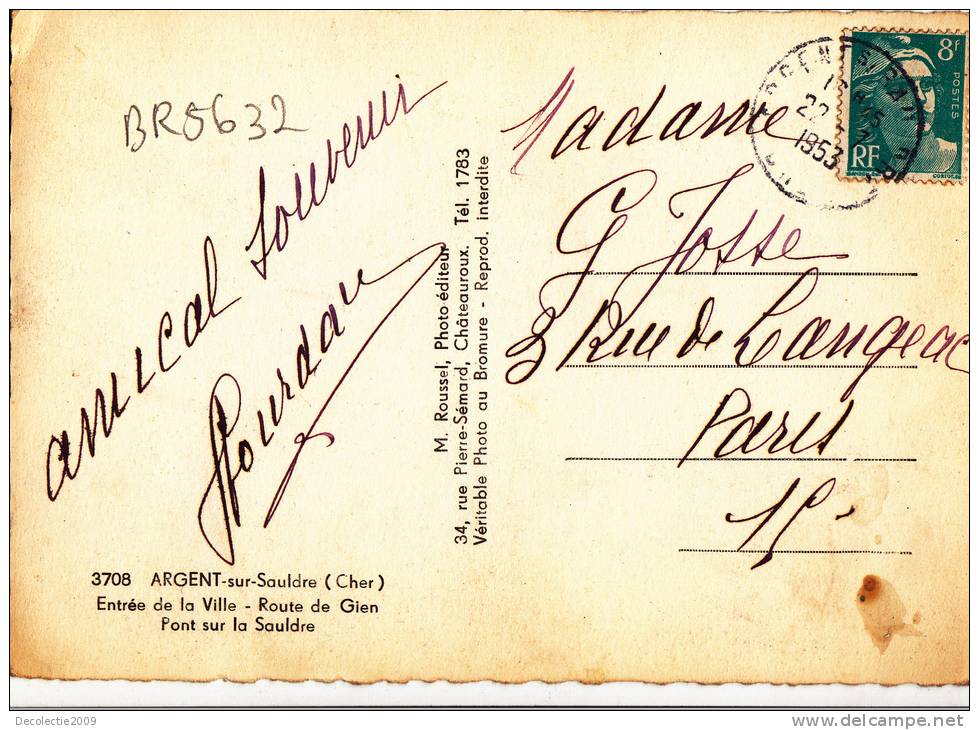 BR5632
amical souvenir
Jourdan
3708 ARGENT-sur-Sauldre (Cher)
Entrée de la Ville - Route de Gien
Pont sur la Sauldre
M. Roussel, Photo éditeur
34, rue Pierre-Sémard, Châteauroux. Tél. 1783
Véritable Photo au Bromure - Reprod. interdite
8F
POSTES
RF
1953
Madame
G Josse
3 Rue de Langeac
Paris
15e
Decolectie2009
www.delcampe.net